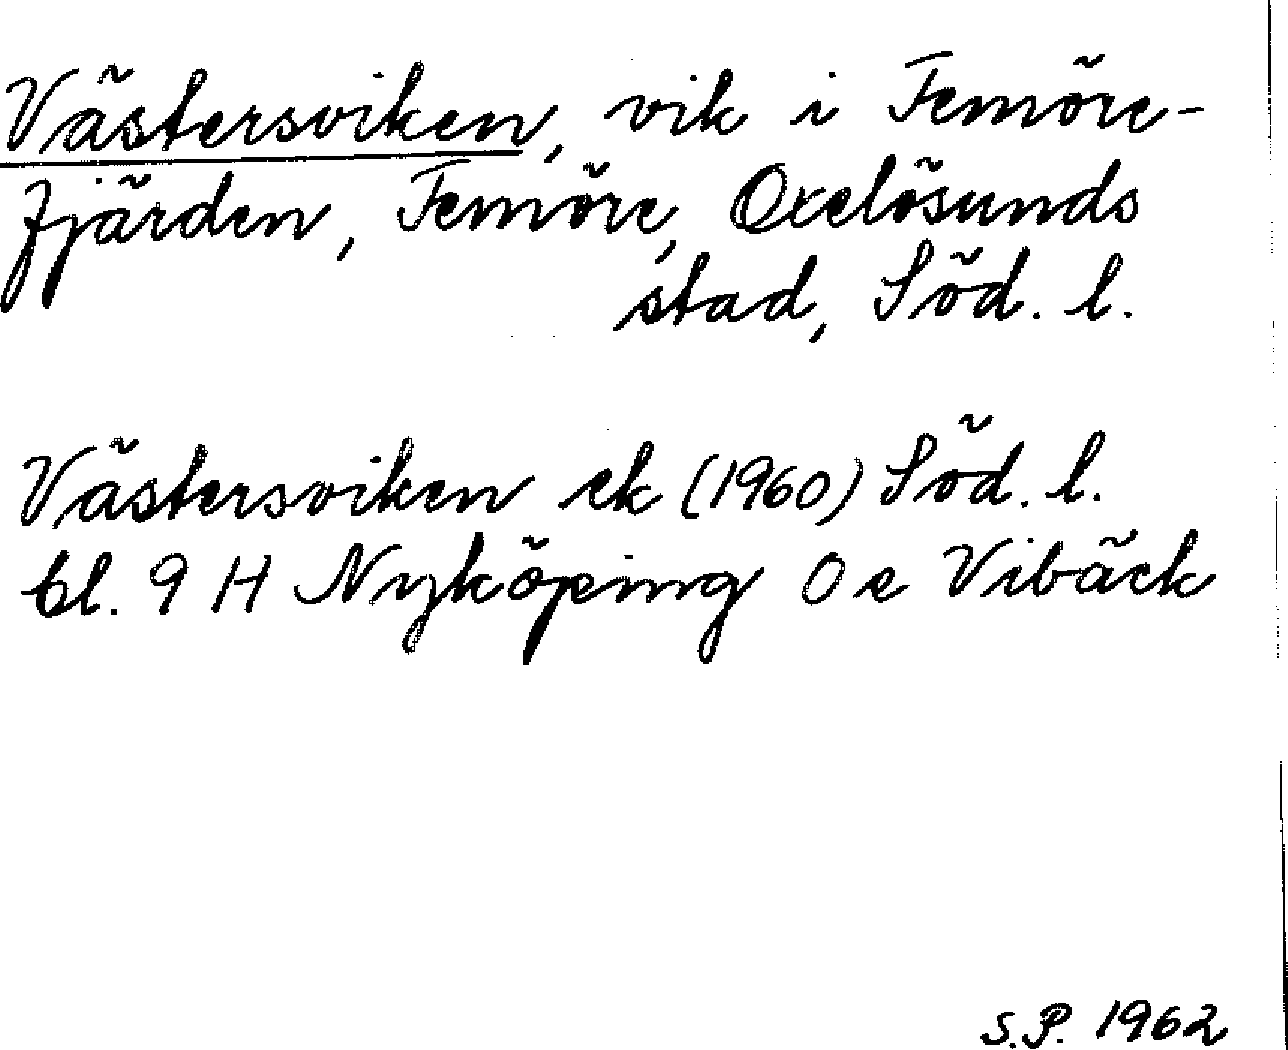 Västersviken, vik i Femöre-
fjärden, Femöre, Oxelösunds
stad, Söd. l.
Västersviken ek (1960) Söd. l.
bl. 9 H Nyköping 0 e Vibäck
S.P. 1962